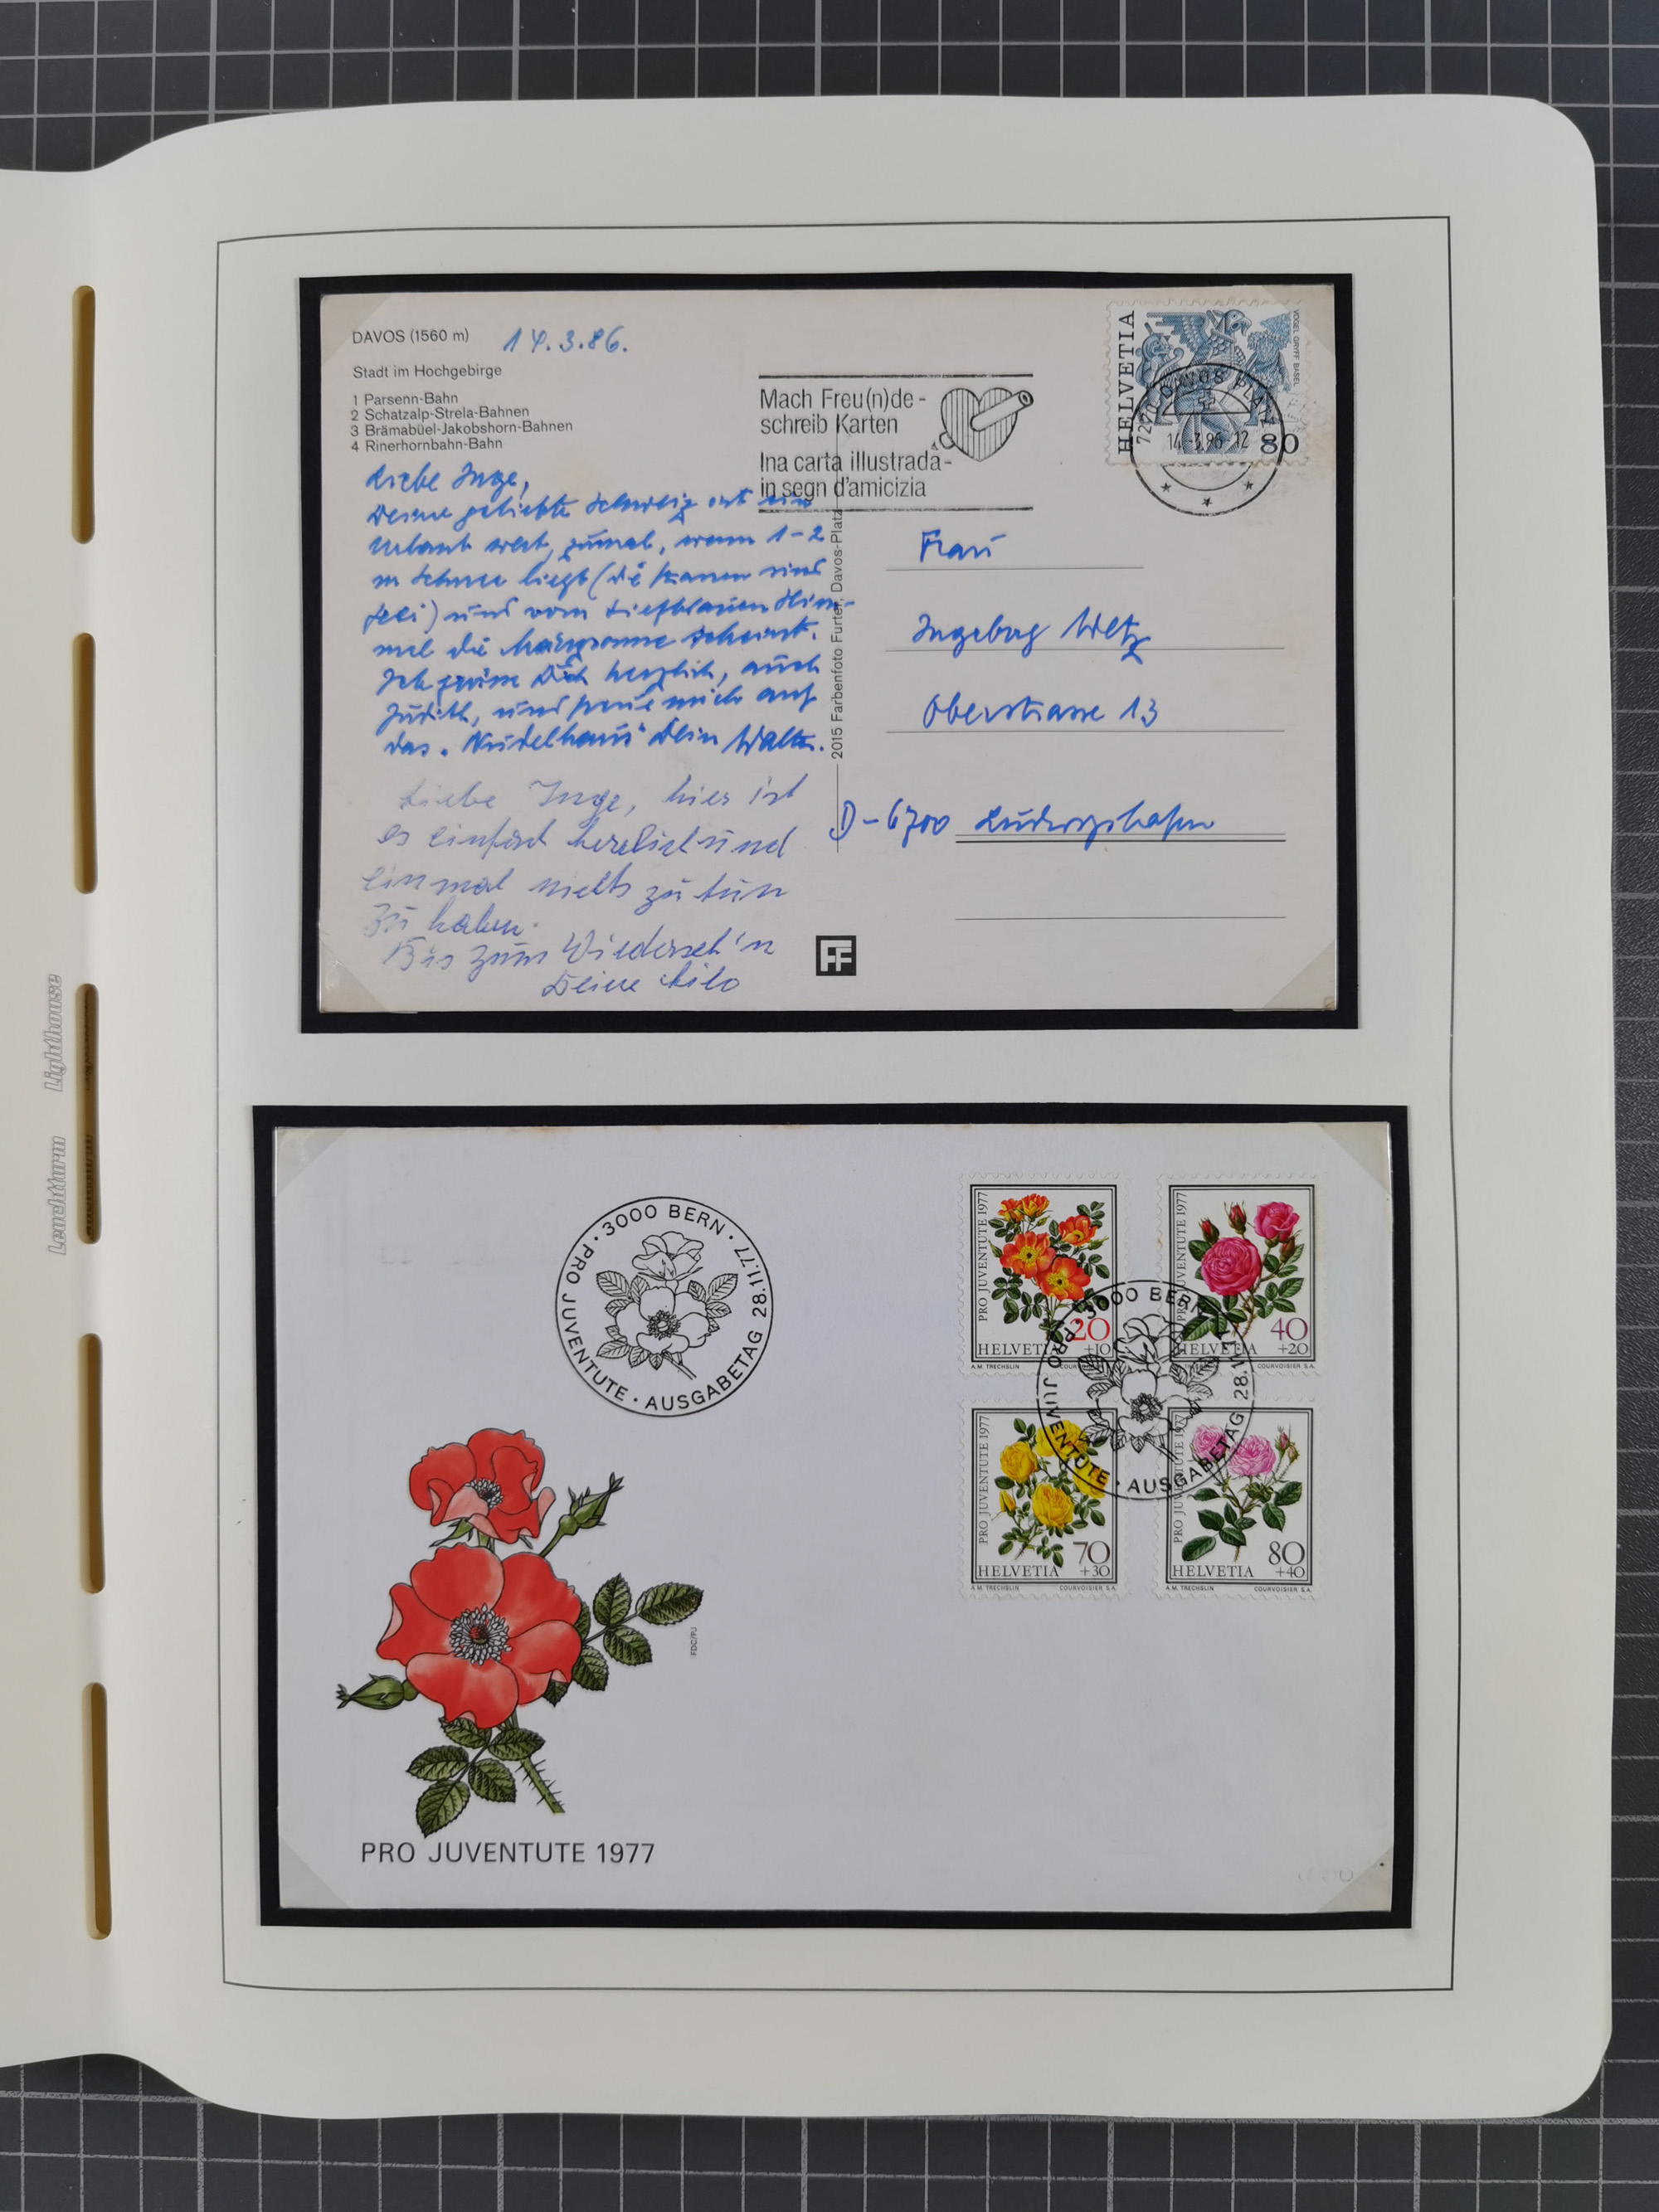 DAVOS (1560 m)
14.3.86.
Stadt im Hochgebirge
1 Parsenn-Bahn
2 Schatzalp-Strela-Bahnen
3 Brämabüel-Jakobshorn-Bahnen
4 Rinerhornbahn-Bahn
Liebe Inge,
Deine geliebte Schweiz ist ein
Urlaub wert, zumal, wenn 1-2
m Schnee liegt (die Pisten sind
) und vom tiefblauen Him-
mel die Märzsonne scheint.
Ich grüsse Dich herzlich, auch
Judith, und freue mich auf
das "Nudelhaus" Dein Walter.
Liebe Inge, hier ist
es einfach herrlich und
einmal nichts zu tun
zu haben.
Bis zum Wiederseh'n
Deine Lilo
Mach Freu(n)de -
schreib Karten
Ina carta illustrada -
in segn d'amicizia
HELVETIA
VOGEL GRYFF BASEL
80
7270 DAVOS PLATZ
14.-3.86-12
2015 Farbenfoto Furter, Davos-Platz
Frau
Ingeborg Weltz
Oberstrasse 13
D-6700 Ludwigshafen
FF
Leuchtturm Lighthouse
· 3000 BERN · PRO JUVENTUTE · AUSGABETAG 28.11.77
PRO JUVENTUTE 1977
20
+10
HELVETIA
A.M. TRECHSLIN
PRO JUVENTUTE 1977
40
+20
HELVETIA
COURVOISIER S.A.
3000 BERN · PRO JUVENTUTE · AUSGABETAG 28.11
PRO JUVENTUTE 1977
70
+30
HELVETIA
A.M. TRECHSLIN COURVOISIER S.A.
PRO JUVENTUTE 1977
80
+40
HELVETIA
A.M. TRECHSLIN COURVOISIER S.A.
FDC/PJ
PRO JUVENTUTE 1977